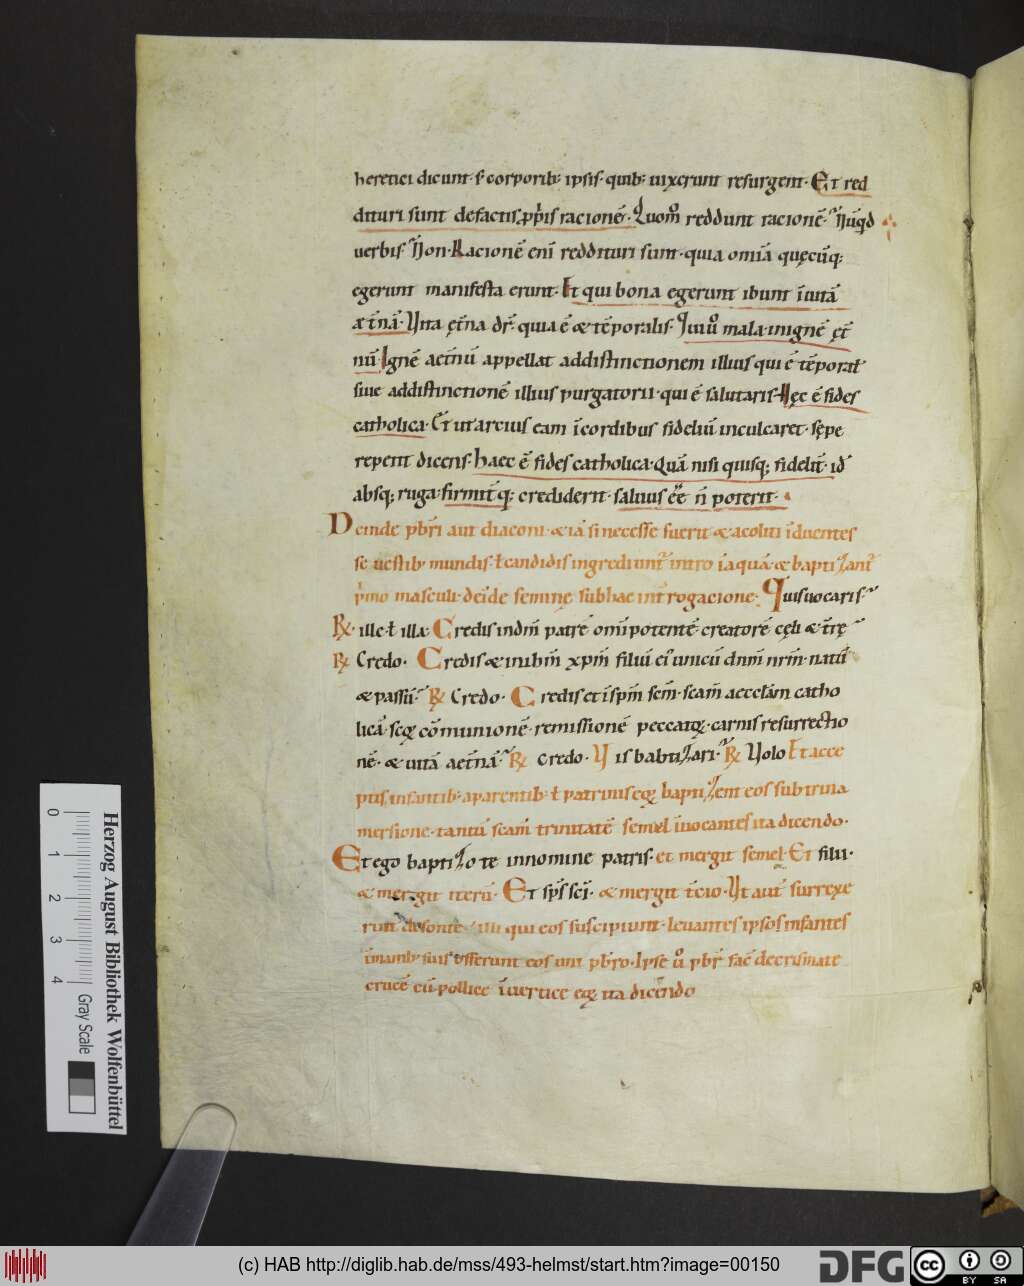 heretici dicunt · s; corporib; ipsis · quib; uixerunt resurgent · Et red
dituri sunt defactis ppͥis racionē · Quom̄o reddunt racionē · Nūqͥd
uerbis · Non · Racionē enī reddituri sunt · quia omīa quęcūq;
egerunt manifesta erunt · Et qui bona egerunt ibunt īuitā
æt̄nā · Vita ęt̄na dr̄ · quia ē & tēporalis · Qui uͦ mala · inignē ęt̄
nū · Ignē aet̄nū appellat addistinctionem illius qui ē tēporał
siue addistinctionē illius purgatorii · qui ē salutaris · Hęc ē fides
catholica · Et ut artius eam īcordibus fideliū inculcaret · sępe
repetit dicens · haec ē fides catholica · Quā nisi quisq; fidelit̄ · id
absq; ruga · firmit̄q; crediderit · saluus ēe n̄ poterit ·
Deinde pbr̄i aut diaconi · & iā si necesse fuerit & acoliti īduentes
se uestib; mundis · ł candidis ingrediunt̄ intro īaquā · & baptizant̄
pͥmo masculi · deīde feminę subhac int̄rogacione · Quis uocaris ·
R̸ · ille · ł illa · Credis indm̄ patrē om̄ipotentē creatorē cęli & t̄rę
R̸ Credo · Credis & inihm̄ xpm̄ filiū eiꝰ unicū dnm̄ nrm̄ · natū
& passū · R̸ Credo · Credis et īspm̄ scm̄ · scam̄ aecclam̄ catho
licā · scōꝝ cōmunionē · remissionē peccatoꝝ · carnis resurrectio
nē · & uitā aet̄nā · R̸ Credo · Vis babtizari · R̸ Volo Et acce
ptis infantib; aparentib; ł patrinis eoꝝ baptizent eos sub trina
mersione · tantū scam̄ trinitatē semel īuocantes ita dicendo ·
Et ego baptizo te innomine patris · et mergit semel · Et filii ·
& mergit iterū · Et sps̄ sci̅ · & mergit t̄cio · Vt aut̄ surrexe
rint defonte · illi qui eos suscipiunt · leuantes ipsos infantes
īmanib; suis offerunt eos uni pbr̄o · Ipse uͦ pbr̄ fac̄ decrismate
crucē cū pollice īuertice eoꝝ ita dicendo
0 1 2 3 4
Gray Scale
Herzog August Bibliothek Wolfenbüttel
(c) HAB http://diglib.hab.de/mss/493-helmst/start.htm?image=00150
DFG
cc BY SA